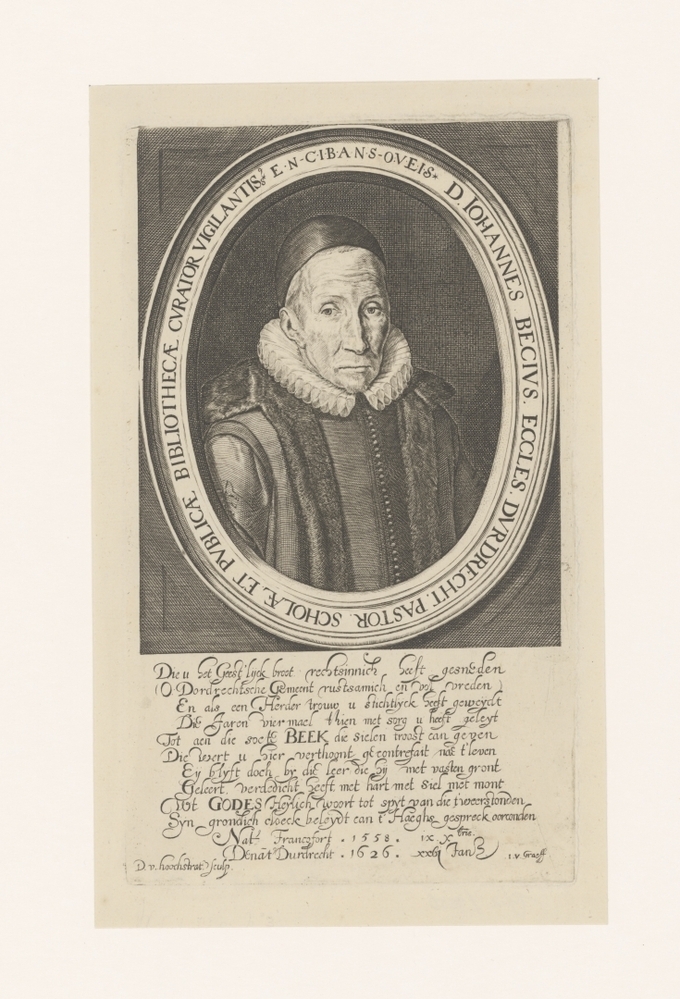 E·N·CIBANS·OVEIS· D. IOHANNES BECIVS. ECCLES. DVRDRECHT. PASTOR. SCHOLÆ. ET PVBLICÆ BIBLIOTHECÆ CVRATOR VIGILANTIS
Die u het Geest'lijck broot rechtsinnich heeft gesneden
(O Dordrechtsche Gemeent rustsamich en vol vreden)
En als een Herder trouw u stichtlyck heeft geweydt
Die Jaren vier mael thien met sorg u heeft geleyt
Tot aen die soete BEEK die sielen troost can geven
Die wert u hier verthoont geconterfait nae t'leven
Ey blyft doch by die leer die hy met vasten gront
Geleert, verdedicht heeft met hart met siel met mont
Wt GODES Heylich woort tot spyt van die tweerstonden
Syn grondich cloeck beleydt can t' Haeghs gespreck oorconden
Nat? Franczfort . 1558. ix X bris.
Denat Durdrecht . 1626. xxvj Jan
D. v. hoochstrat sculp. I. v. Graeff